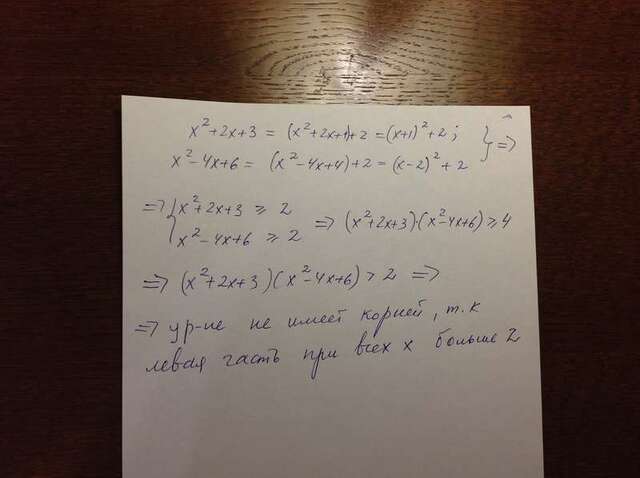 x²+2x+3 = (x²+2x+1)+2 = (x+1)²+2; } =>
x²-4x+6 = (x²-4x+4)+2 = (x-2)²+2
=> { x²+2x+3 ≥ 2
x²-4x+6 ≥ 2 => (x²+2x+3)·(x²-4x+6) ≥ 4
=> (x²+2x+3)(x²-4x+6) > 2 =>
=> ур-ие не имеет корней, т.к
левая часть при всех x больше 2